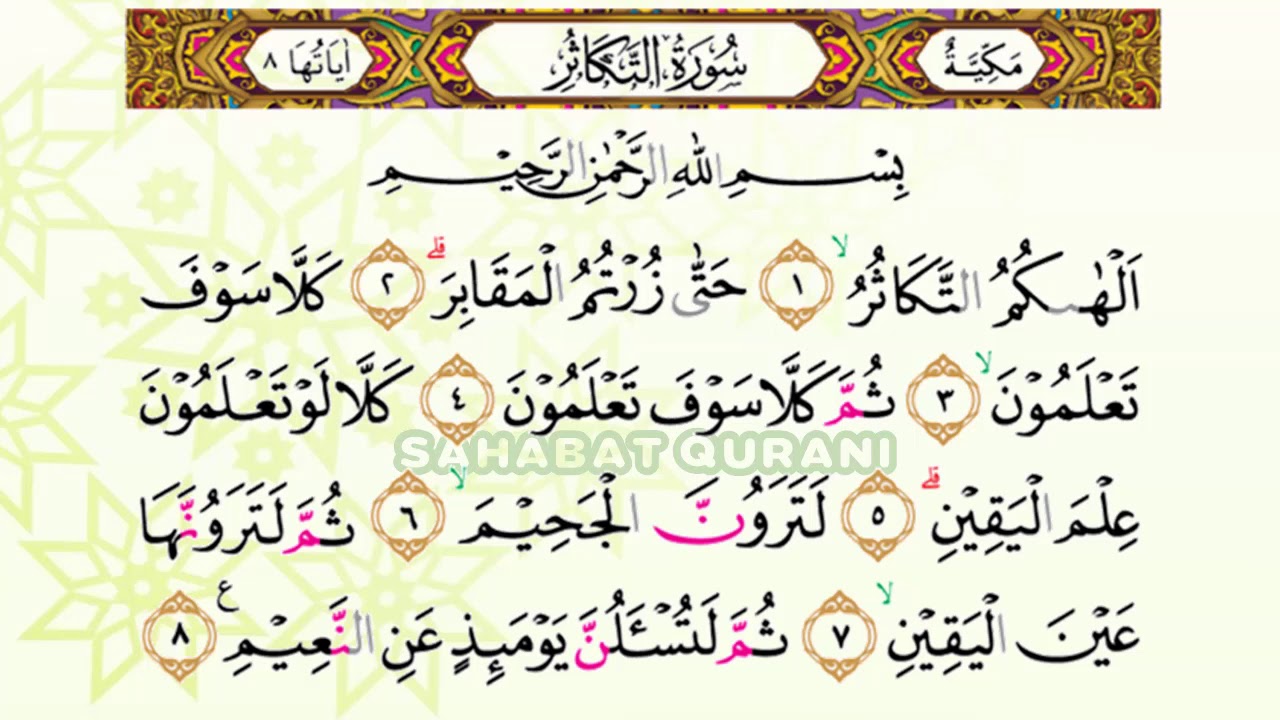 مَكِّيَّةٌ سُوْرَةُ التَّكَاثُرِ اٰيَاتُهَا ٨
بِسْمِ اللّٰهِ الرَّحْمٰنِ الرَّحِيْمِ
اَلْهٰىكُمُ التَّكَاثُرُۙ ١ حَتّٰى زُرْتُمُ الْمَقَابِرَۗ ٢ كَلَّا سَوْفَ
تَعْلَمُوْنَۙ ٣ ثُمَّ كَلَّا سَوْفَ تَعْلَمُوْنَ ٤ كَلَّا لَوْ تَعْلَمُوْنَ
SAHABAT QURANI
عِلْمَ الْيَقِيْنِۗ ٥ لَتَرَوُنَّ الْجَحِيْمَۙ ٦ ثُمَّ لَتَرَوُنَّهَا
عَيْنَ الْيَقِيْنِۙ ٧ ثُمَّ لَتُسْـَٔلُنَّ يَوْمَىِٕذٍ عَنِ النَّعِيْمِ ࣖ ٨